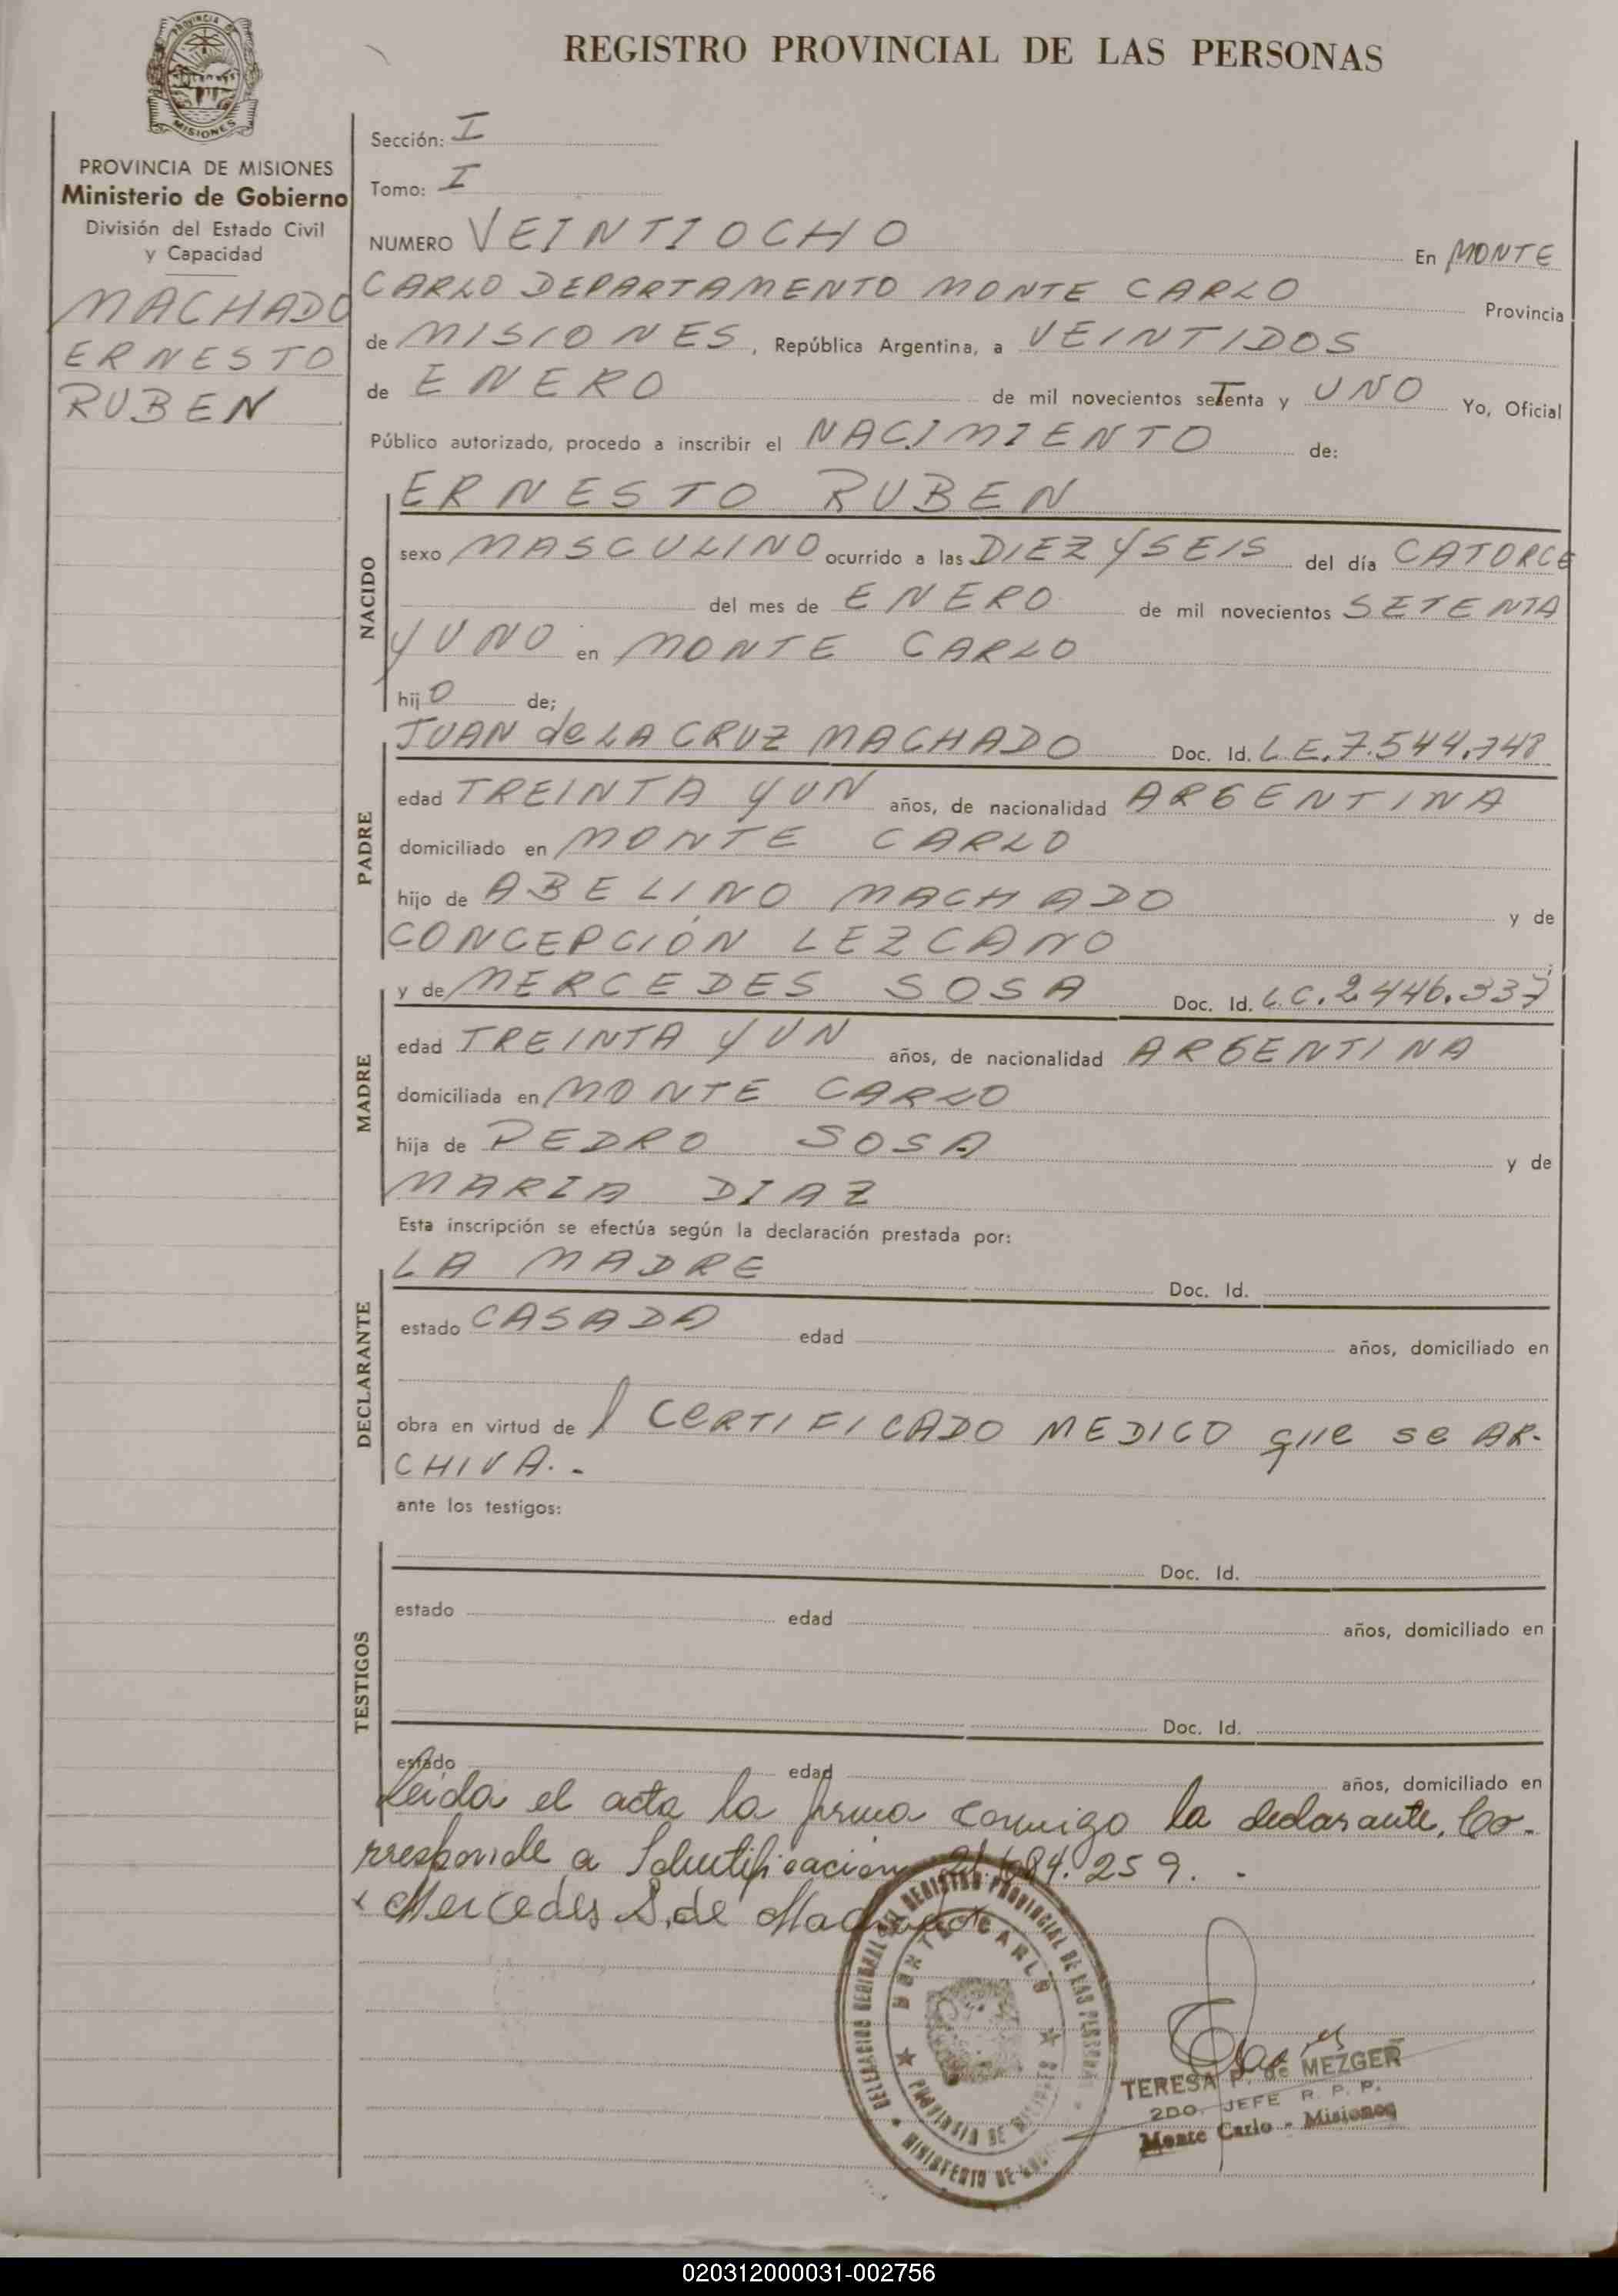 REGISTRO PROVINCIAL DE LAS PERSONAS
PROVINCIA DE
MISIONES
PROVINCIA DE MISIONES
Ministerio de Gobierno
División del Estado Civil
y Capacidad
MACHADO
ERNESTO
RUBEN
Sección: I
Tomo: I
NUMERO VEINTIOCHO En MONTE
CARLO DEPARTAMENTO MONTE CARLO Provincia
de MISIONES, República Argentina, a VEINTIDOS
de ENERO de mil novecientos seTenta y UNO Yo, Oficial
Público autorizado, procedo a inscribir el NACIMIENTO de:
NACIDO
ERNESTO RUBEN
sexo MASCULINO ocurrido a las DIEZ Y SEIS del día CATORCE
del mes de ENERO de mil novecientos SETENTA
Y UNO en MONTE CARLO
hijO de;
PADRE
JUAN de LA CRUZ MACHADO Doc. Id. L.E. 7.544.748
edad TREINTA Y UN años, de nacionalidad ARGENTINA
domiciliado en MONTE CARLO
hijo de ABELINO MACHADO y de
CONCEPCIÓN LEZCANO
MADRE
y de MERCEDES SOSA Doc. Id. L.C. 2.446.337
edad TREINTA Y UN años, de nacionalidad ARGENTINA
domiciliada en MONTE CARLO
hija de PEDRO SOSA y de
MARIA DIAZ
Esta inscripción se efectúa según la declaración prestada por:
DECLARANTE
LA MADRE Doc. Id.
estado CASADA edad años, domiciliado en
obra en virtud de 1 CERTIFICADO MEDICO que se AR-
CHIVA.-
ante los testigos:
TESTIGOS
Doc. Id.
estado edad años, domiciliado en
Doc. Id.
estado edad años, domiciliado en
Leida el acta la firma conmigo la declarante. Co-
rresponde a Identificacion 21.684.259.-
x Mercedes S. de Machado
DELEGACION REGIONAL DEL REGISTRO PROVINCIAL DE LAS PERSONAS
MONTE CARLO
PROVINCIA DE MISIONES
MINISTERIO DE
TERESA P. de MEZGER
2DO. JEFE R. P. P.
Monte Carlo - Misiones
020312000031-002756